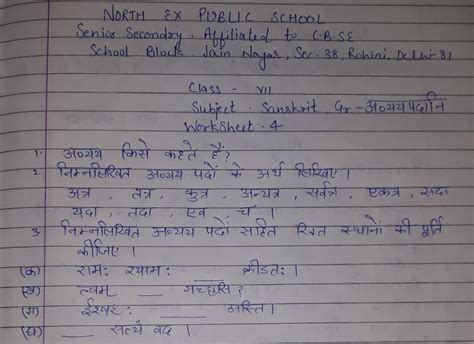 NORTH EX PUBLIC SCHOOL
Senior Secondry. Affiliated to C.B.SE
School Block Jain Nagar, Sec-38, Rohini, Delhi-81
Class - VII
Subject - Sanskrit Gr - अव्यय पदानि
WorkSheet - 4
1. अव्यय किसे कहते हैं?
2. निम्नलिखित अव्यय पदों के अर्थ लिखिए ।
अत्र , तत्र , कुत्र , अन्यत्र , सर्वत्र , एकत्र , सदा
यदा , तदा , एव , च ।
3. निम्नलिखित अव्यय पदों सहित रिक्त स्थानों की पूर्ति
कीजिए ।
(क) रामः श्यामः ____ क्रीडतः ।
(ख) त्वम ___ गच्छसि ?
(ग) ईश्वरः ____ अस्ति ।
(घ) ___ सत्यं वद ।